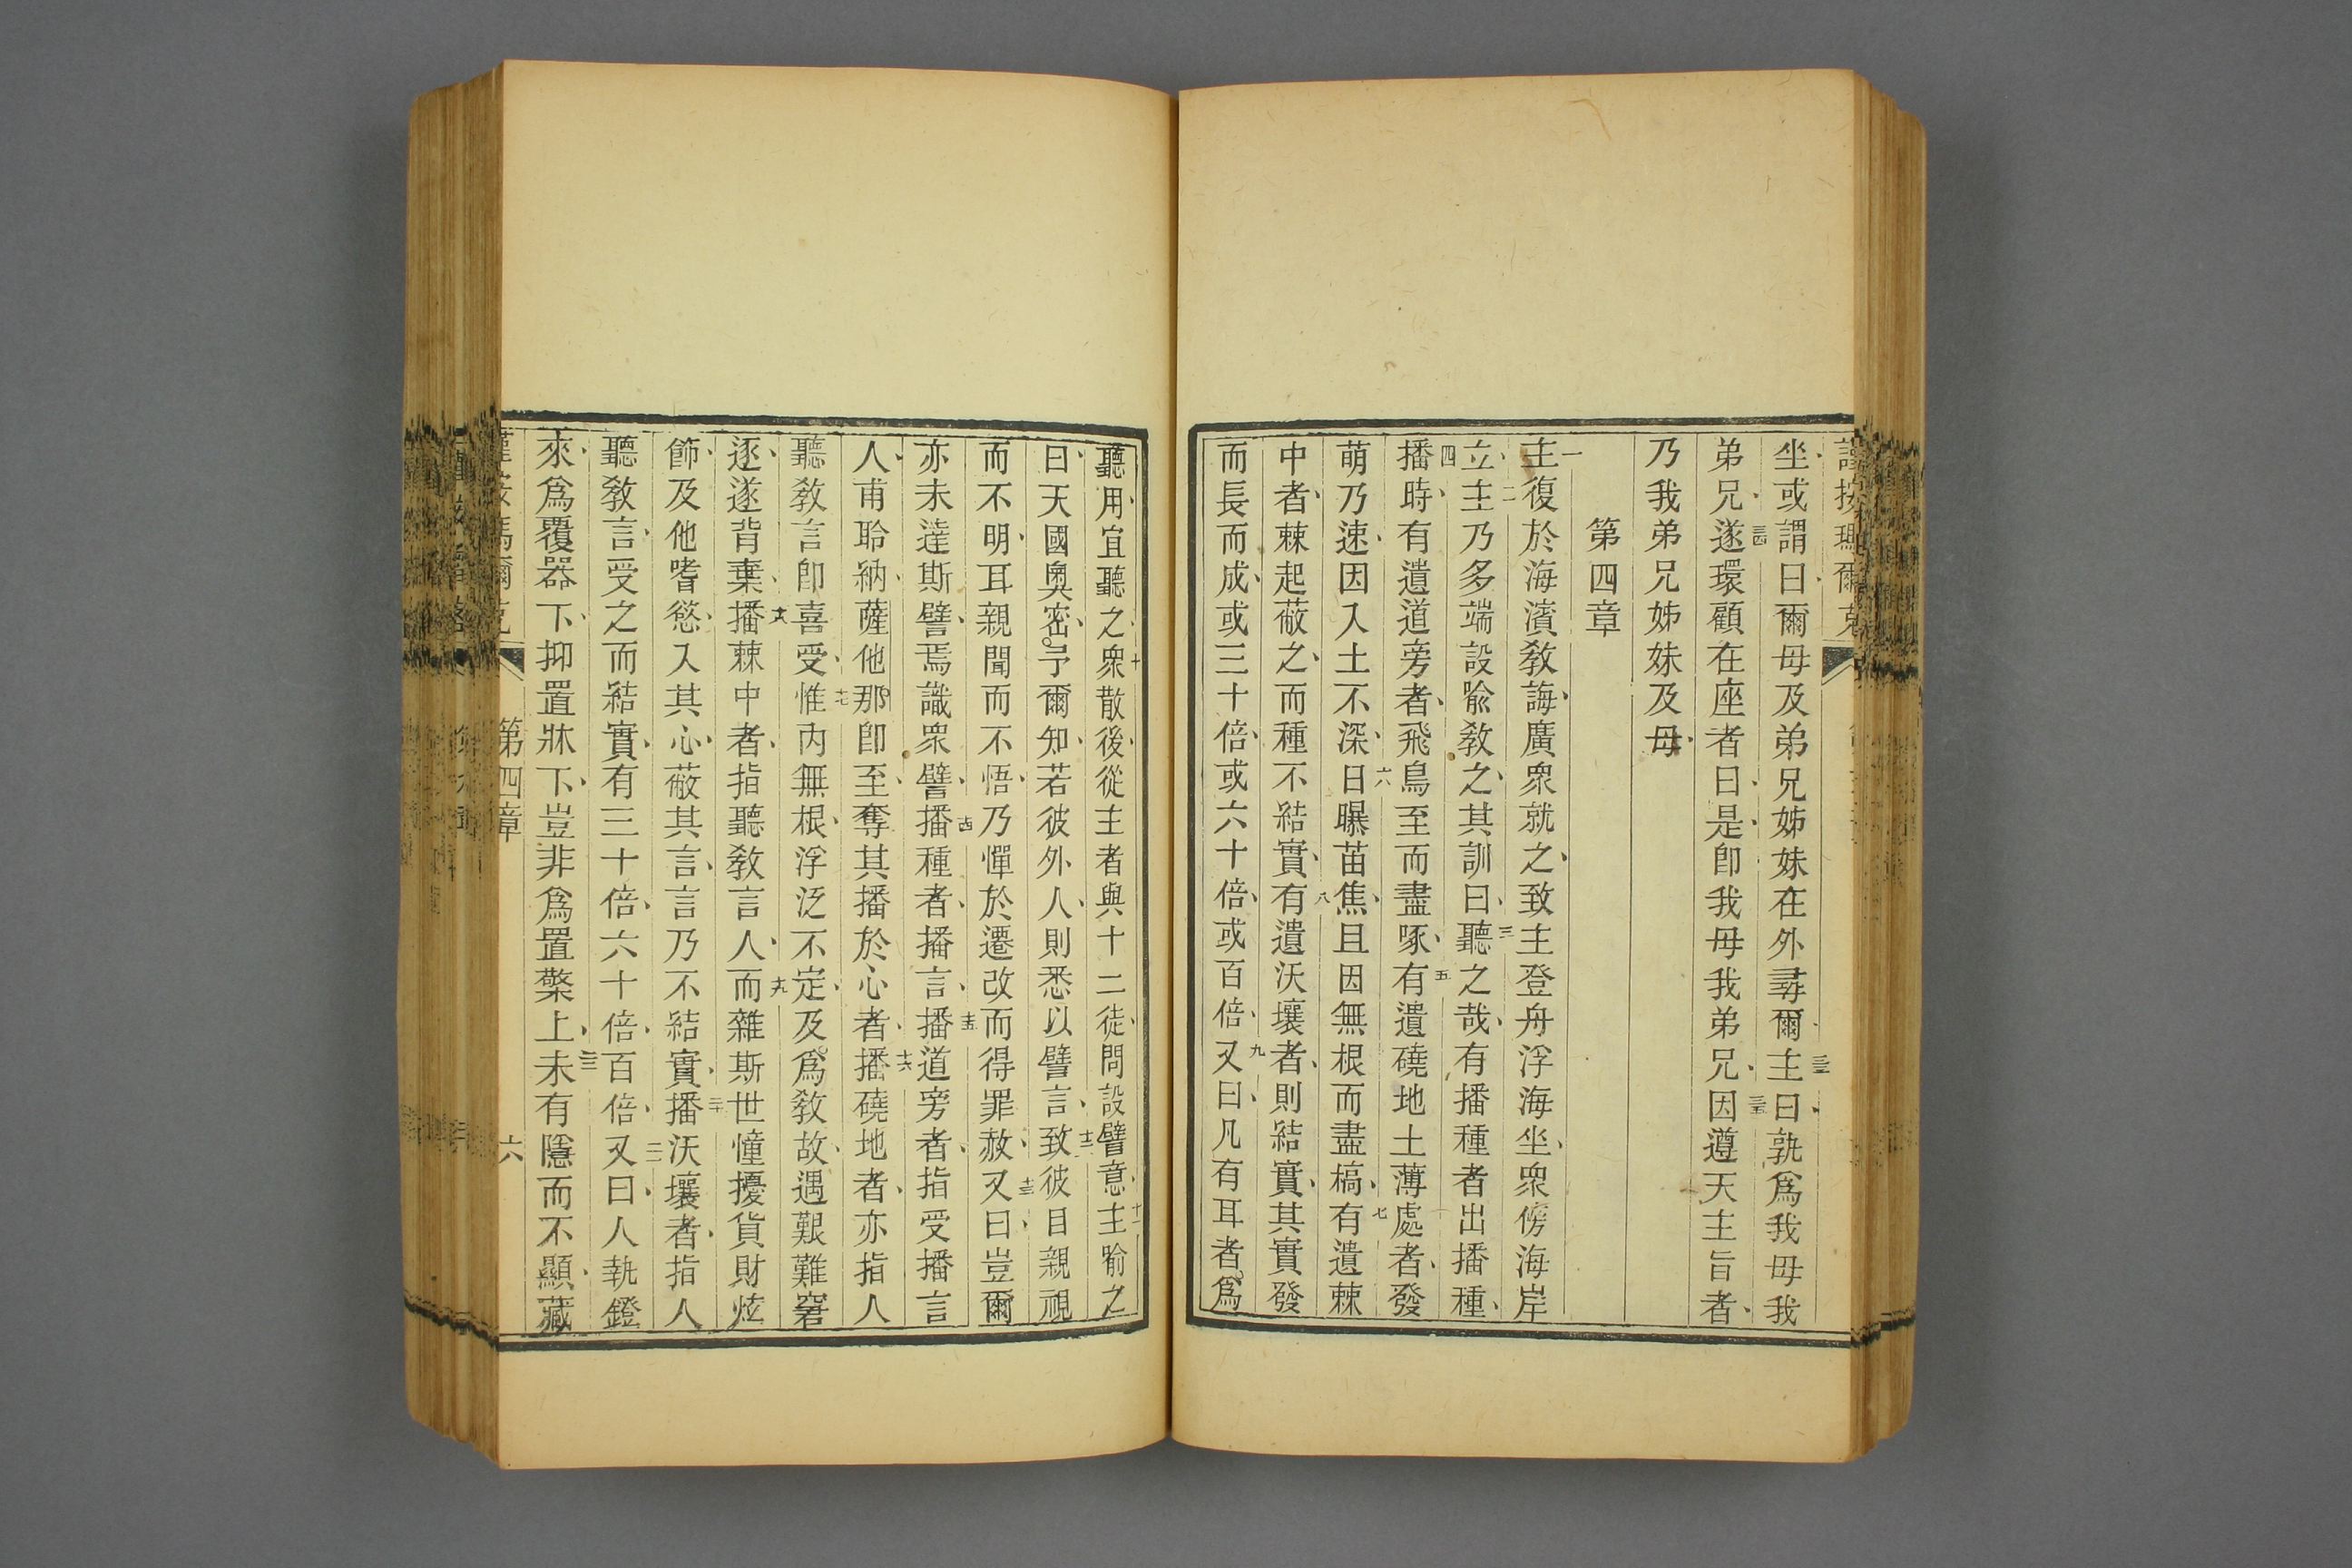 謹按瑪爾克
坐或謂曰爾母及弟兄姊妹在外尋爾三三主曰孰爲我母我
弟兄三四遂環顧在座者曰是卽我母我弟兄三五因遵天主旨者
乃我弟兄姊妹及母
第四章
一主復於海濱敎誨廣衆就之致主登舟浮海坐衆傍海岸
立二主乃多端設喩敎之其訓曰三聽之哉有播種者出播種
四播時有遺道旁者飛鳥至而盡啄五有遺磽地土薄處者發
萌乃速因入土不深六日曝苗焦且因無根而盡槁七有遺棘
中者棘起蔽之而種不結實八有遺沃壤者則結實其實發
而長而成或三十倍或六十倍或百倍九又曰凡有耳者爲
聽用宜聽之十衆散後從主者與十二徒問設譬意十一主喻之
曰天國奧密予爾知若彼外人則悉以譬言致十二彼目親視
而不明耳親聞而不悟乃憚於遷改而得罪赦十三又曰豈爾
亦未達斯譬焉識衆譬十四播種者播言十五播道旁者指受播言
人甫聆納薩他那卽至奪其播於心者十六播磽地者亦指人
聽敎言卽喜受十七惟內無根浮泛不定及爲敎故遇艱難窘
逐遂背棄十八播棘中者指聽敎言人十九而雜斯世憧擾貨財炫
飾及他嗜慾入其心蔽其言言乃不結實二十播沃壤者指人
聽敎言受之而結實有三十倍六十倍百倍二一又曰人執鐙
來爲覆器下抑置牀下豈非爲置檠上二二未有隱而不顯藏
第四章
六